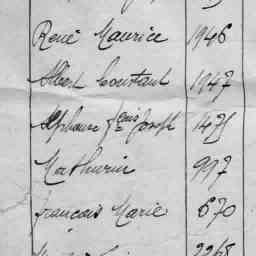 René Maurice 1946
Albert Constant 1947
Alphonse fçois Joseph 1475
Mathurin 997
François Marie 670
2268